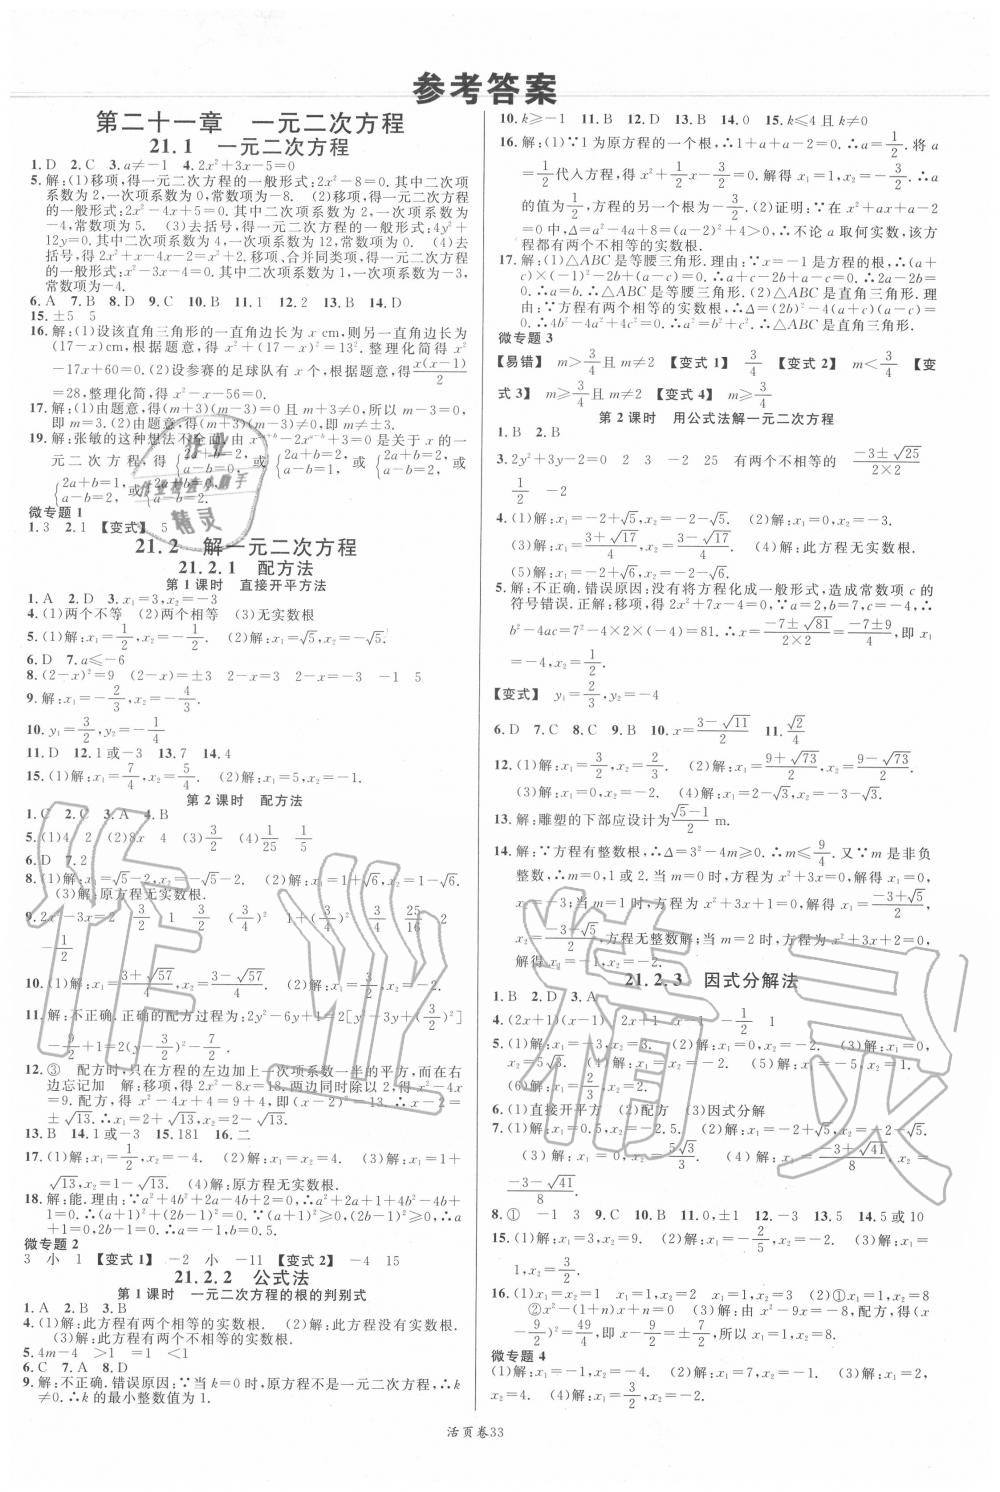 参考答案
第二十一章　一元二次方程
21.1　一元二次方程
1.D　2.C　3.a≠-1　4.2x²+3x-5=0
5.解:(1)移项,得一元二次方程的一般形式:2x²-8=0.其中二次项
系数为2,一次项系数为0,常数项为-8.　(2)移项,得一元二次方程
的一般形式:2x²-4x+5=0.其中二次项系数为2,一次项系数为
-4,常数项为5.　(3)去括号,得一元二次方程的一般形式:4y²+
12y=0.其中二次项系数为4,一次项系数为12,常数项为0.　(4)去
括号,得2x²+x-4x-2=x²+2.移项、合并同类项,得一元二次方程
的一般形式:x²-3x-4=0.其中二次项系数为1,一次项系数为-3,
常数项为-4.
6.A　7.B　8.D　9.C　10.B　11.1　12.2　13.B　14.D
15.±5　5
16.解:(1)设该直角三角形的一直角边长为x cm,则另一直角边长为
(17-x)cm,根据题意,得x²+(17-x)²=13².整理化简得x²-
17x+60=0.　(2)设参赛的足球队有x个,根据题意,得x(x-1)/2
=28,整理化简,得x²-x-56=0.
17.解:(1)由题意,得(m+3)(m-3)=0且m+3≠0,所以m-3=0,
即m=3.(2)由题意,得(m+3)(m-3)≠0,即m≠±3.
19.解:张敏的这种想法不全面.由
元二次方程,得{2a+b=2, a-b=2,或{2a+b=2, a-b=1,或{2a+b=2, a-b=0,或
{2a+b=1, a-b=2,或{2a+b=0, a-b=2.
微专题1
1.3　2.1　【变式】　5
21.2　解一元二次方程
21.2.1　配方法
第1课时　直接开平方法
1.A　2.D　3.x₁=3,x₂=-3
4.(1)两个不等　(2)两个相等　(3)无实数根
5.(1)解:x₁=1/2,x₂=-1/2.　(2)解:x₁=√5,x₂=-√5.
6.D　7.a≤-6
8.(2-x)²=9　(2-x)=±3　2-x=3　2-x=-3　-1　5
9.解:x₁=-2/3,x₂=-4/3.
10.y₁=3/2,y₂=-1/4
11.D　12.1或-3　13.7　14.4
15.(1)解:x₁=7/4,x₂=5/4.　(2)解:x₁=5,x₂=-1.
第2课时　配方法
1.C　2.C　3.A　4.B
5.(1)4　2　(2)8x　4　(3)3/2　(4)1/25　1/5
6.D　7.2
8.(1)解:x₁=√5-2,x₂=-√5-2.　(2)解:x₁=1+√6,x₂=1-√6.
(3)解:原方程无实数根.
9.2x²-3x=2　3/2　1　(3/2)²　1+(3/4)²　3/4　25/16　2
-1/2
10.(1)解:x₁=(3+√57)/4,x₂=(3-√57)/4.　(2)解:原方程无实数根.
11.解:不正确.正确的配方过程为:2y²-6y+1=2[y²-3y+(3/2)²]
-9/2+1=2(y-3/2)²-7/2.
12.③　配方时,只在方程的左边加上一次项系数一半的平方,而在右
边忘记加　解:移项,得2x²-8x=18.两边同时除以2,得x²-4x
=9.配方,得x²-4x+4=9+4,即(x-2)²=13.∴x-2=
±√13.∴x₁=2+√13,x₂=2-√13.
13.B　14.1或-3　15.181　16.二
17.(1)解:x₁=1/2,x₂=-4.　(2)解:x₁=4,x₂=-2.　(3)解:x₁=1+
√13,x₂=1-√13.　(4)解:原方程无实数根.
18.解:能.理由:∵a²+4b²+2a-4b+2=0,∴a²+2a+1+4b²-4b+
1=0.∴(a+1)²+(2b-1)²=0.∵(a+1)²≥0,(2b-1)²≥0,∴
a+1=0,2b-1=0.∴a=-1,b=0.5.
微专题2
3　小　1　【变式1】　-2　小　-11　【变式2】　-4　15
21.2.2　公式法
第1课时　一元二次方程的根的判别式
1.A　2.B　3.B
4.(1)解:此方程有两个相等的实数根.　(2)解:此方程没有实数根.
(3)解:此方程有两个不相等的实数根.
5.4m-4　>1　=1　<1
6.C　7.A　8.D
9.解:不正确.错误原因:∵当k=0时,原方程不是一元二次方程,∴k
≠0.∴k的最小整数值为1.
10.k≥-1　11.B　12.D　13.B　14.0　15.k≤4且k≠0
16.解:(1)∵1为原方程的一个根,∴1+a+a-2=0.∴a=1/2.将a=
1/2代入方程,得x²+1/2x-3/2=0.解得x₁=1,x₂=-3/2.∴a
的值为1/2,方程的另一个根为-3/2.(2)证明:∵在x²+ax+a-2
=0中,Δ=a²-4a+8=(a-2)²+4>0,∴不论a取何实数,该方
程都有两个不相等的实数根.
17.解:(1)△ABC是等腰三角形.理由:∵x=-1是方程的根,∴(a+
c)×(-1)²-2b+(a-c)=0.∴a+c-2b+a-c=0.∴2a-2b=
0.∴a=b.∴△ABC是等腰三角形.(2)△ABC是直角三角形.理
由:∵方程有两个相等的实数根,∴(2b)²-4(a+c)(a-c)=
0.∴4b²-4a²+4c²=0.∴a²=b²+c².∴△ABC是直角三角形.
微专题3
【易错】　m>3/4且m≠2　【变式1】　m≥3/4　【变式2】　m<3/4　【变
式3】　m≥3/4且m≠2　【变式4】　m≥3/4
第2课时　用公式法解一元二次方程
1.B　2.B
3.2y²+3y-2=0　2　3　-2　25　有两个不相等的　(-3±√25)/(2×2)
1/2　-2
4.(1)解:x₁=-2+√5,x₂=-2-√5.　(2)解:x₁=0,x₂=-3.
(3)解:x₁=(3+√17)/4,x₂=(3-√17)/4.　(4)解:此方程无实数根.
5.解:不正确.错误原因:没有将方程化成一般形式,造成常数项c的
符号错误.正解:移项,得2x²+7x-4=0,∵a=2,b=7,c=-4,∴
b²-4ac=7²-4×2×(-4)=81.∴x=(-7±√81)/(2×2)=(-7±9)/4,即x₁
=-4,x₂=1/2.
【变式】　y₁=2/3,y₂=-4
6.D　7.C　8.C　9.B　10.x=(3-√11)/2　11.√2/4
12.(1)解:x₁=3/2,x₂=2/3.　(2)解:x₁=(9+√73)/2,x₂=(9-√73)/2.
(3)解:x₁=4,x₂=-2.　(4)解:x₁=-2,x₂=-3.
13.解:雕塑的下部应设计为(√5-1)/2 m.
14.解:∵方程有整数根,∴Δ=3²-4m≥0.∴m≤9/4.又∵m是非负
整数,∴m=0或1或2.当m=0时,方程为x²+3x=0,解得x₁=0,
x₂=-3;当m=1时,方程为x²+3x+1=0,解得x₁=(-3+√5)/2,
x₂=(-3-√5)/2,方程无整数解;当m=2时,方程为x²+3x+2=0,
解得x₁=-1,x₂=-2.
21.2.3　因式分解法
1.B　2.D　3.A
4.(2x+1)(x-1)　2x+1　x-1　-1/2　1
5.(1)解:x₁=-3,x₂=3.　(2)解:x₁=0,x₂=-2.　(3)解:x₁=0,
x₂=5√3.
(6)解:x₁=2/3,x₂=2.
6.(1)直接开平方　(2)配方　(3)因式分解
7.(1)解:x₁=0.5,x₂=-2.5.
-3-√41/8.
8.①　-1　3　9.C　10.B　11.0,±1　12.-3　13.5　14.5或10
15.(1)解:x₁=3,x₂=9.
1.　(4)解:x₁=0,x₂=4.
16.(1)x₁=1,x₂=1　x₁=1,x₂=2　x₁=1,x₂=3　(2)①x₁=1,x₂=8
②x²-(1+n)x+n=0　(3)解:由x²-9x=-8,配方,得(x-
9/2)²=49/4,即x-9/2=±7/2,所以x₁=1,x₂=8.
微专题4
(1)解:x₁=4,x₂=-4.　(2)解:x₁=7,x₂=-1.　(3)解:x₁=2,
x₂=4.　(4)解:x₁=3/2,x₂=-2.
活页卷33